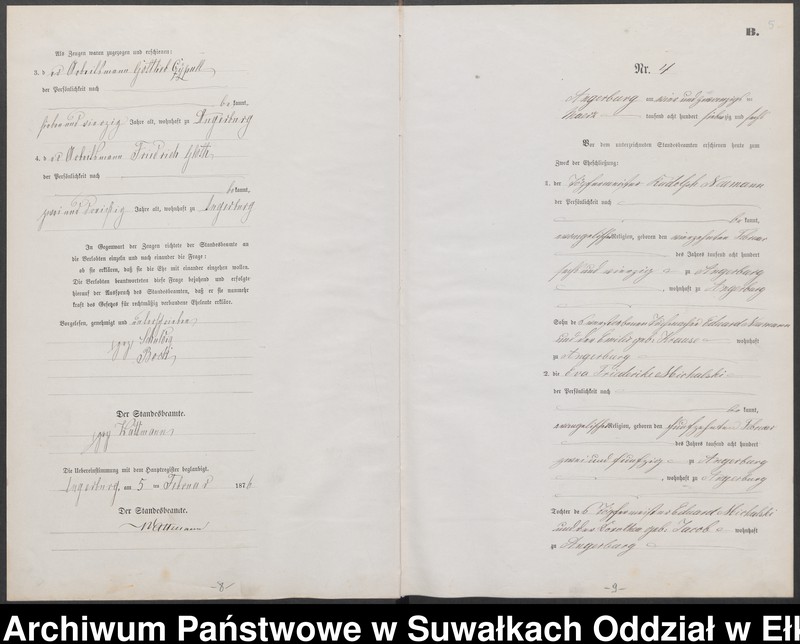 Als Zeugen waren zugezogen und erschienen:
3. der Arbeitsmann Gottlieb
der Persönlichkeit nach
be kannt,
sieben und vierzig Jahre alt, wohnhaft zu Angerburg
4. der Arbeitsmann Friedrich
der Persönlichkeit nach
bekannt,
zwei und dreißig Jahre alt, wohnhaft zu Angerburg
In Gegenwart der Zeugen richtete der Standesbeamte an
die Verlobten einzeln und nach einander die Frage:
ob sie erklären, daß sie die Ehe mit einander eingehen wollen.
Die Verlobten beantworteten diese Frage bejahend und erfolgte
hierauf der Ausspruch des Standesbeamten, daß er sie nunmehr
kraft des Gesetzes für rechtmäßig verbundene Eheleute erkläre.
Vorgelesen, genehmigt und unterschrieben
gez
Der Standesbeamte.
gez Wottmann
Die Uebereinstimmung mit dem Hauptregister beglaubigt.
Angerburg, am 5 ten Februar 1876
Der Standesbeamte.
Wottmann
-8-
B.
5
Nr. 4
Angerburg am vier und zwanzigsten
Maerz tausend acht hundert siebenzig und sechs
Vor dem unterzeichneten Standesbeamten erschienen heute zum
Zweck der Eheschließung:
1. der Töpfermeister Rudolph Neumann
der Persönlichkeit nach
be kannt,
evangelischer Religion, geboren den vierzehnten Februar
des Jahres tausend acht hundert
sechs und vierzig zu Angerburg
, wohnhaft zu Angerburg
Sohn des verstorbenen Töpfermeister Eduard Neumann
und der Emilie geb. Krause wohnhaft
zu Angerburg
2. die Eva Friederike Michalski
der Persönlichkeit nach
be kannt,
evangelischer Religion, geboren den fünfzehnten Februar
des Jahres tausend acht hundert
zwei und fünfzig zu Angerburg
, wohnhaft zu Angerburg
Tochter des Töpfermeisters Eduard Michalski
und der Dorothea geb. Jacob wohnhaft
zu Angerburg
-9-
Archiwum Państwowe w Suwałkach Oddział w Ełk